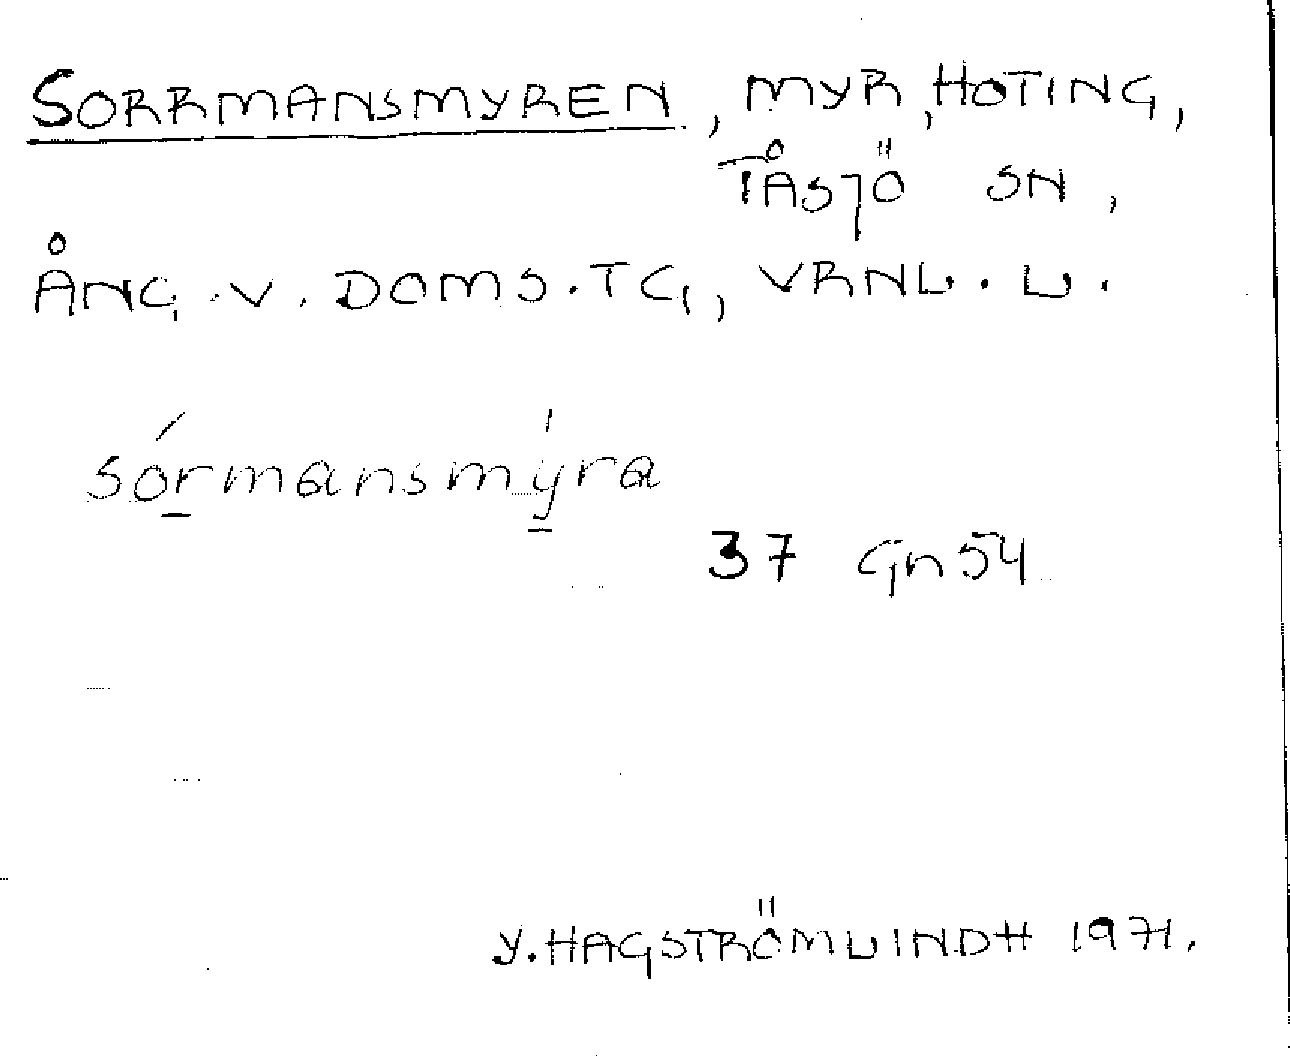 SORRMANSMYREN, MYR, HOTING,
TÅSJÖ SN,
ÅNG.V.DOMS.TG, VRNL.L.
sórmansmýra
37 Gn54
Y.HAGSTRÖMLINDH 1971.